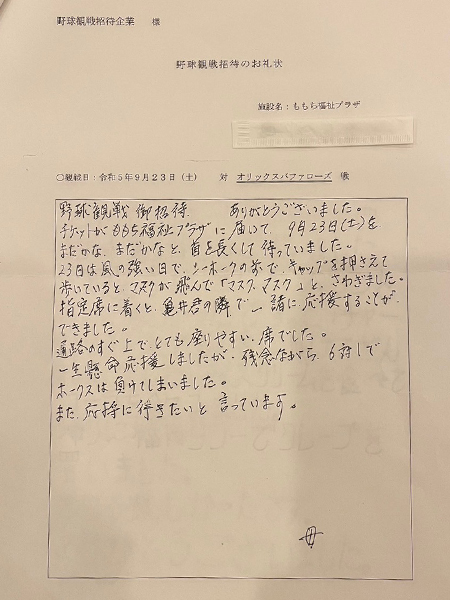 野球観戦招待企業 様
野球観戦招待のお礼状
施設名：ももち福祉プラザ
○観戦日：令和5年9月23日（土） 対 オリックスバファローズ 戦
野球観戦 御招待、 ありがとうございました。
チケットがももち福祉プラザに届いて、9月23日(土)を
まだかな、まだかなと、首を長くして待っていました。
23日は風の強い日で、シーホークの前で、キャップを押さえて
歩いていると、マスクが飛んで「マスク、マスク」と、さわぎました。
指定席に着くと、亀井君の隣で、一緒に応援することが
できました。
通路のすぐ上で、とても座りやすい席でした。
一生懸命応援しましたが、残念ながら、6対1で
ホークスは負けてしまいました。
また、応援に行きたいと言っています。
母